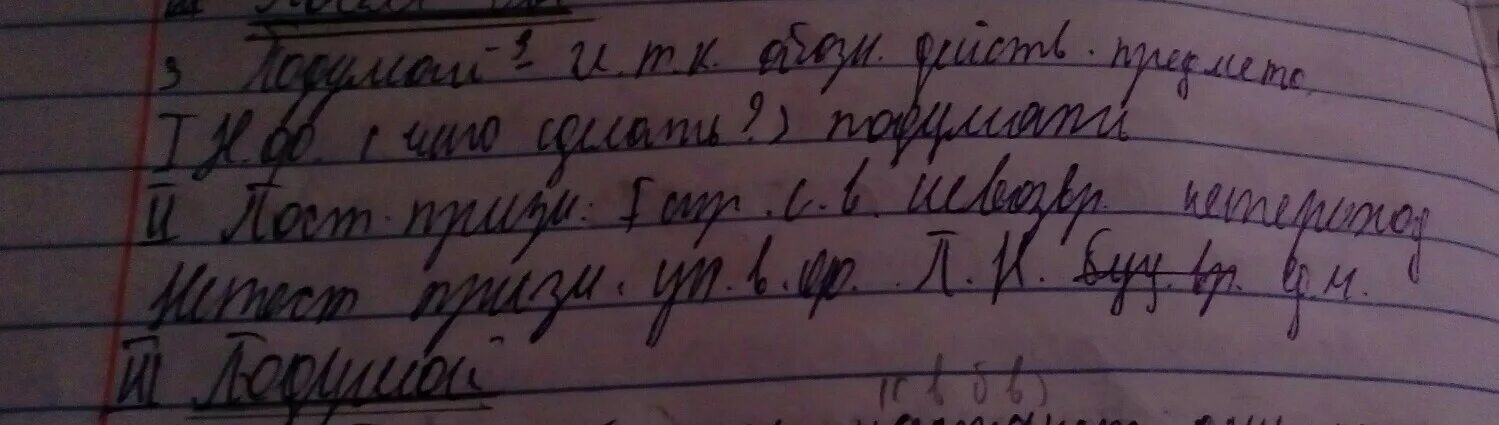 Подумай -³ Г. т.к. обозн. действ. предмета
I Н.ф. (что сделать?) подумать
II Пост. призн. I спр. с.в. невозвр. непереход
Непост призн. уп. в. ф. П. Н. буд. вр. ед. ч.
III Подумай